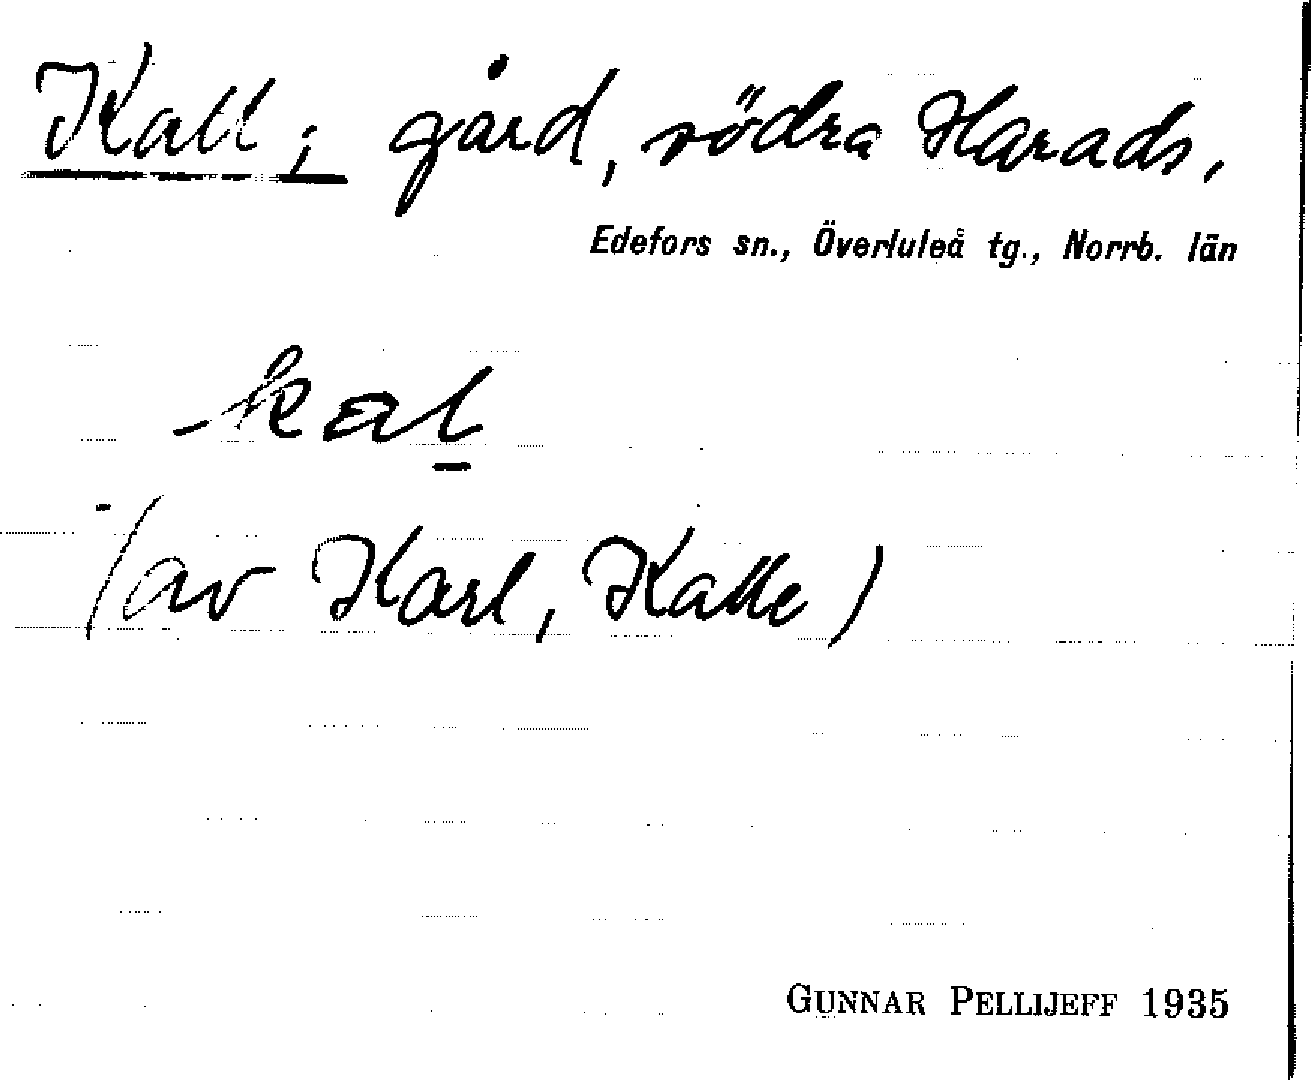 Kall, gård, södra Harads,
Edefors sn., Överluleå tg., Norrb. län
-kal
(av Karl, Kalle)
GUNNAR PELLIJEFF 1935